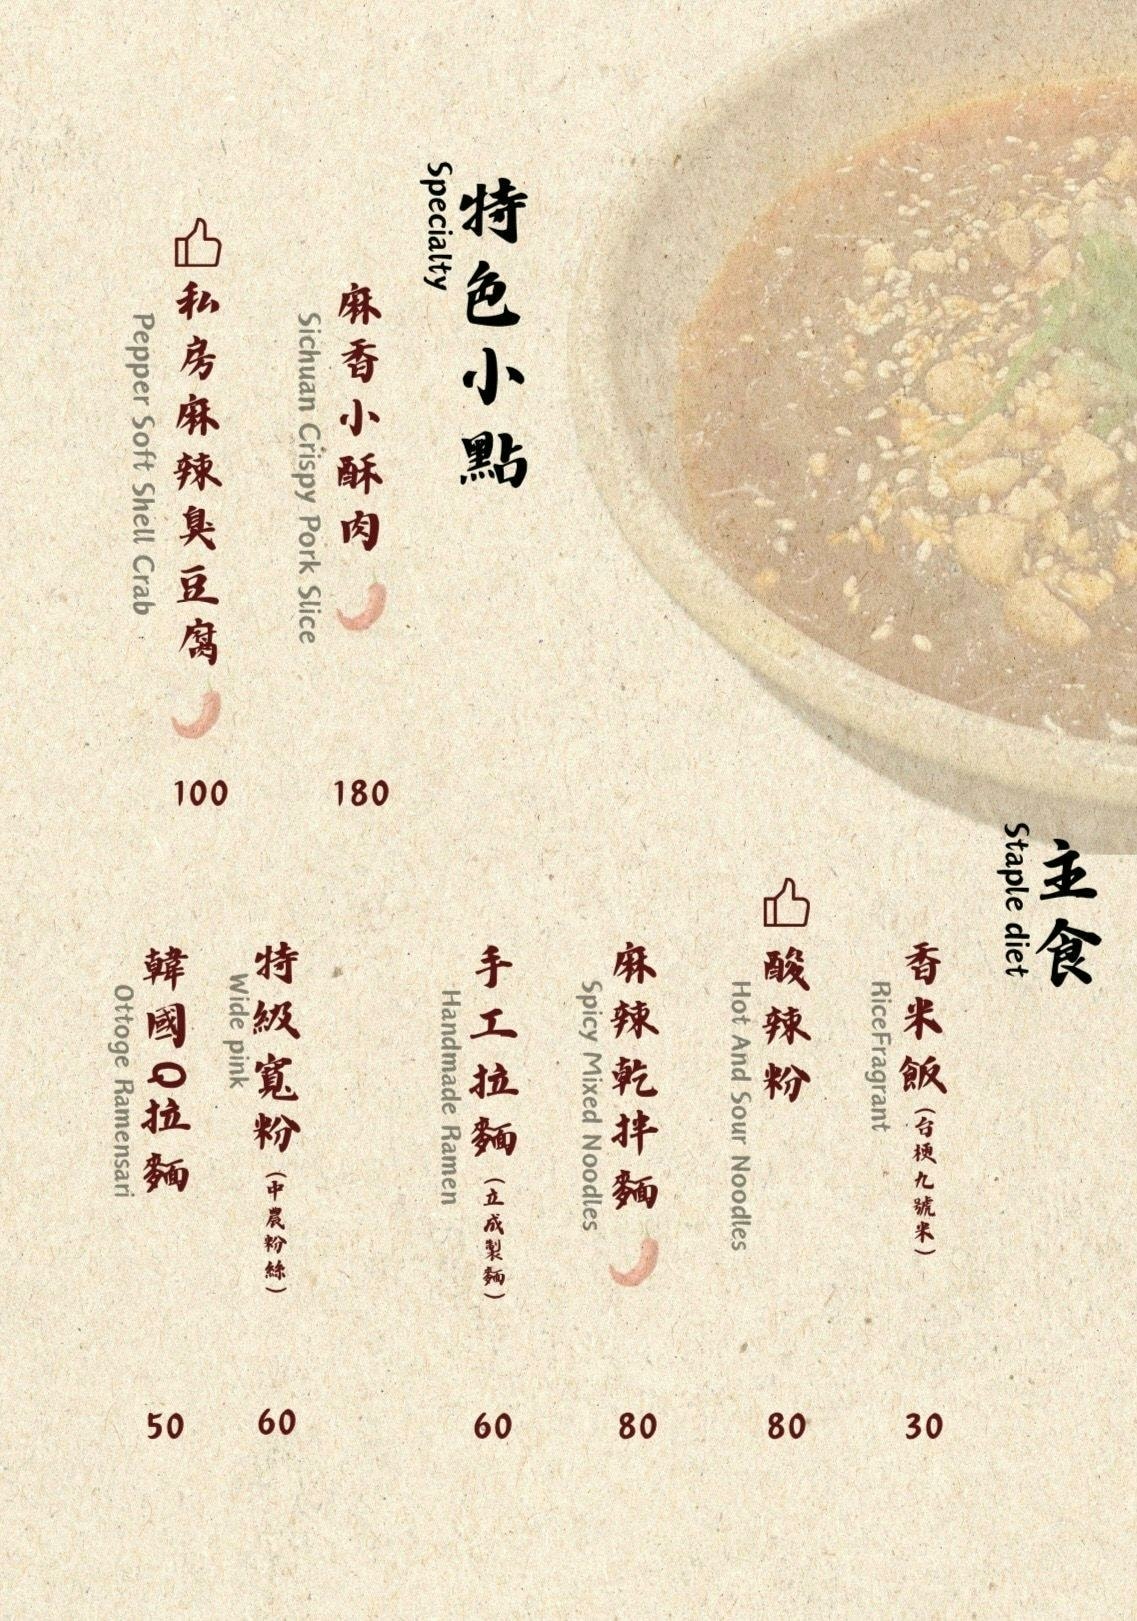 特色小點
Specialty
麻香小酥肉
Sichuan Crispy Pork Slice
180
私房麻辣臭豆腐
Pepper Soft Shell Crab
100
主食
Staple diet
香米飯(台梗九號米)
RiceFragrant
30
酸辣粉
Hot And Sour Noodles
80
麻辣乾拌麵
Spicy Mixed Noodles
80
手工拉麵(立成製麵)
Handmade Ramen
60
特級寬粉(中農粉絲)
Wide pink
60
韓國Q拉麵
Ottoge Ramensari
50